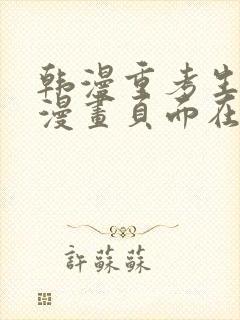 韩漫重考生
漫畫頁而在
許蘇蘇